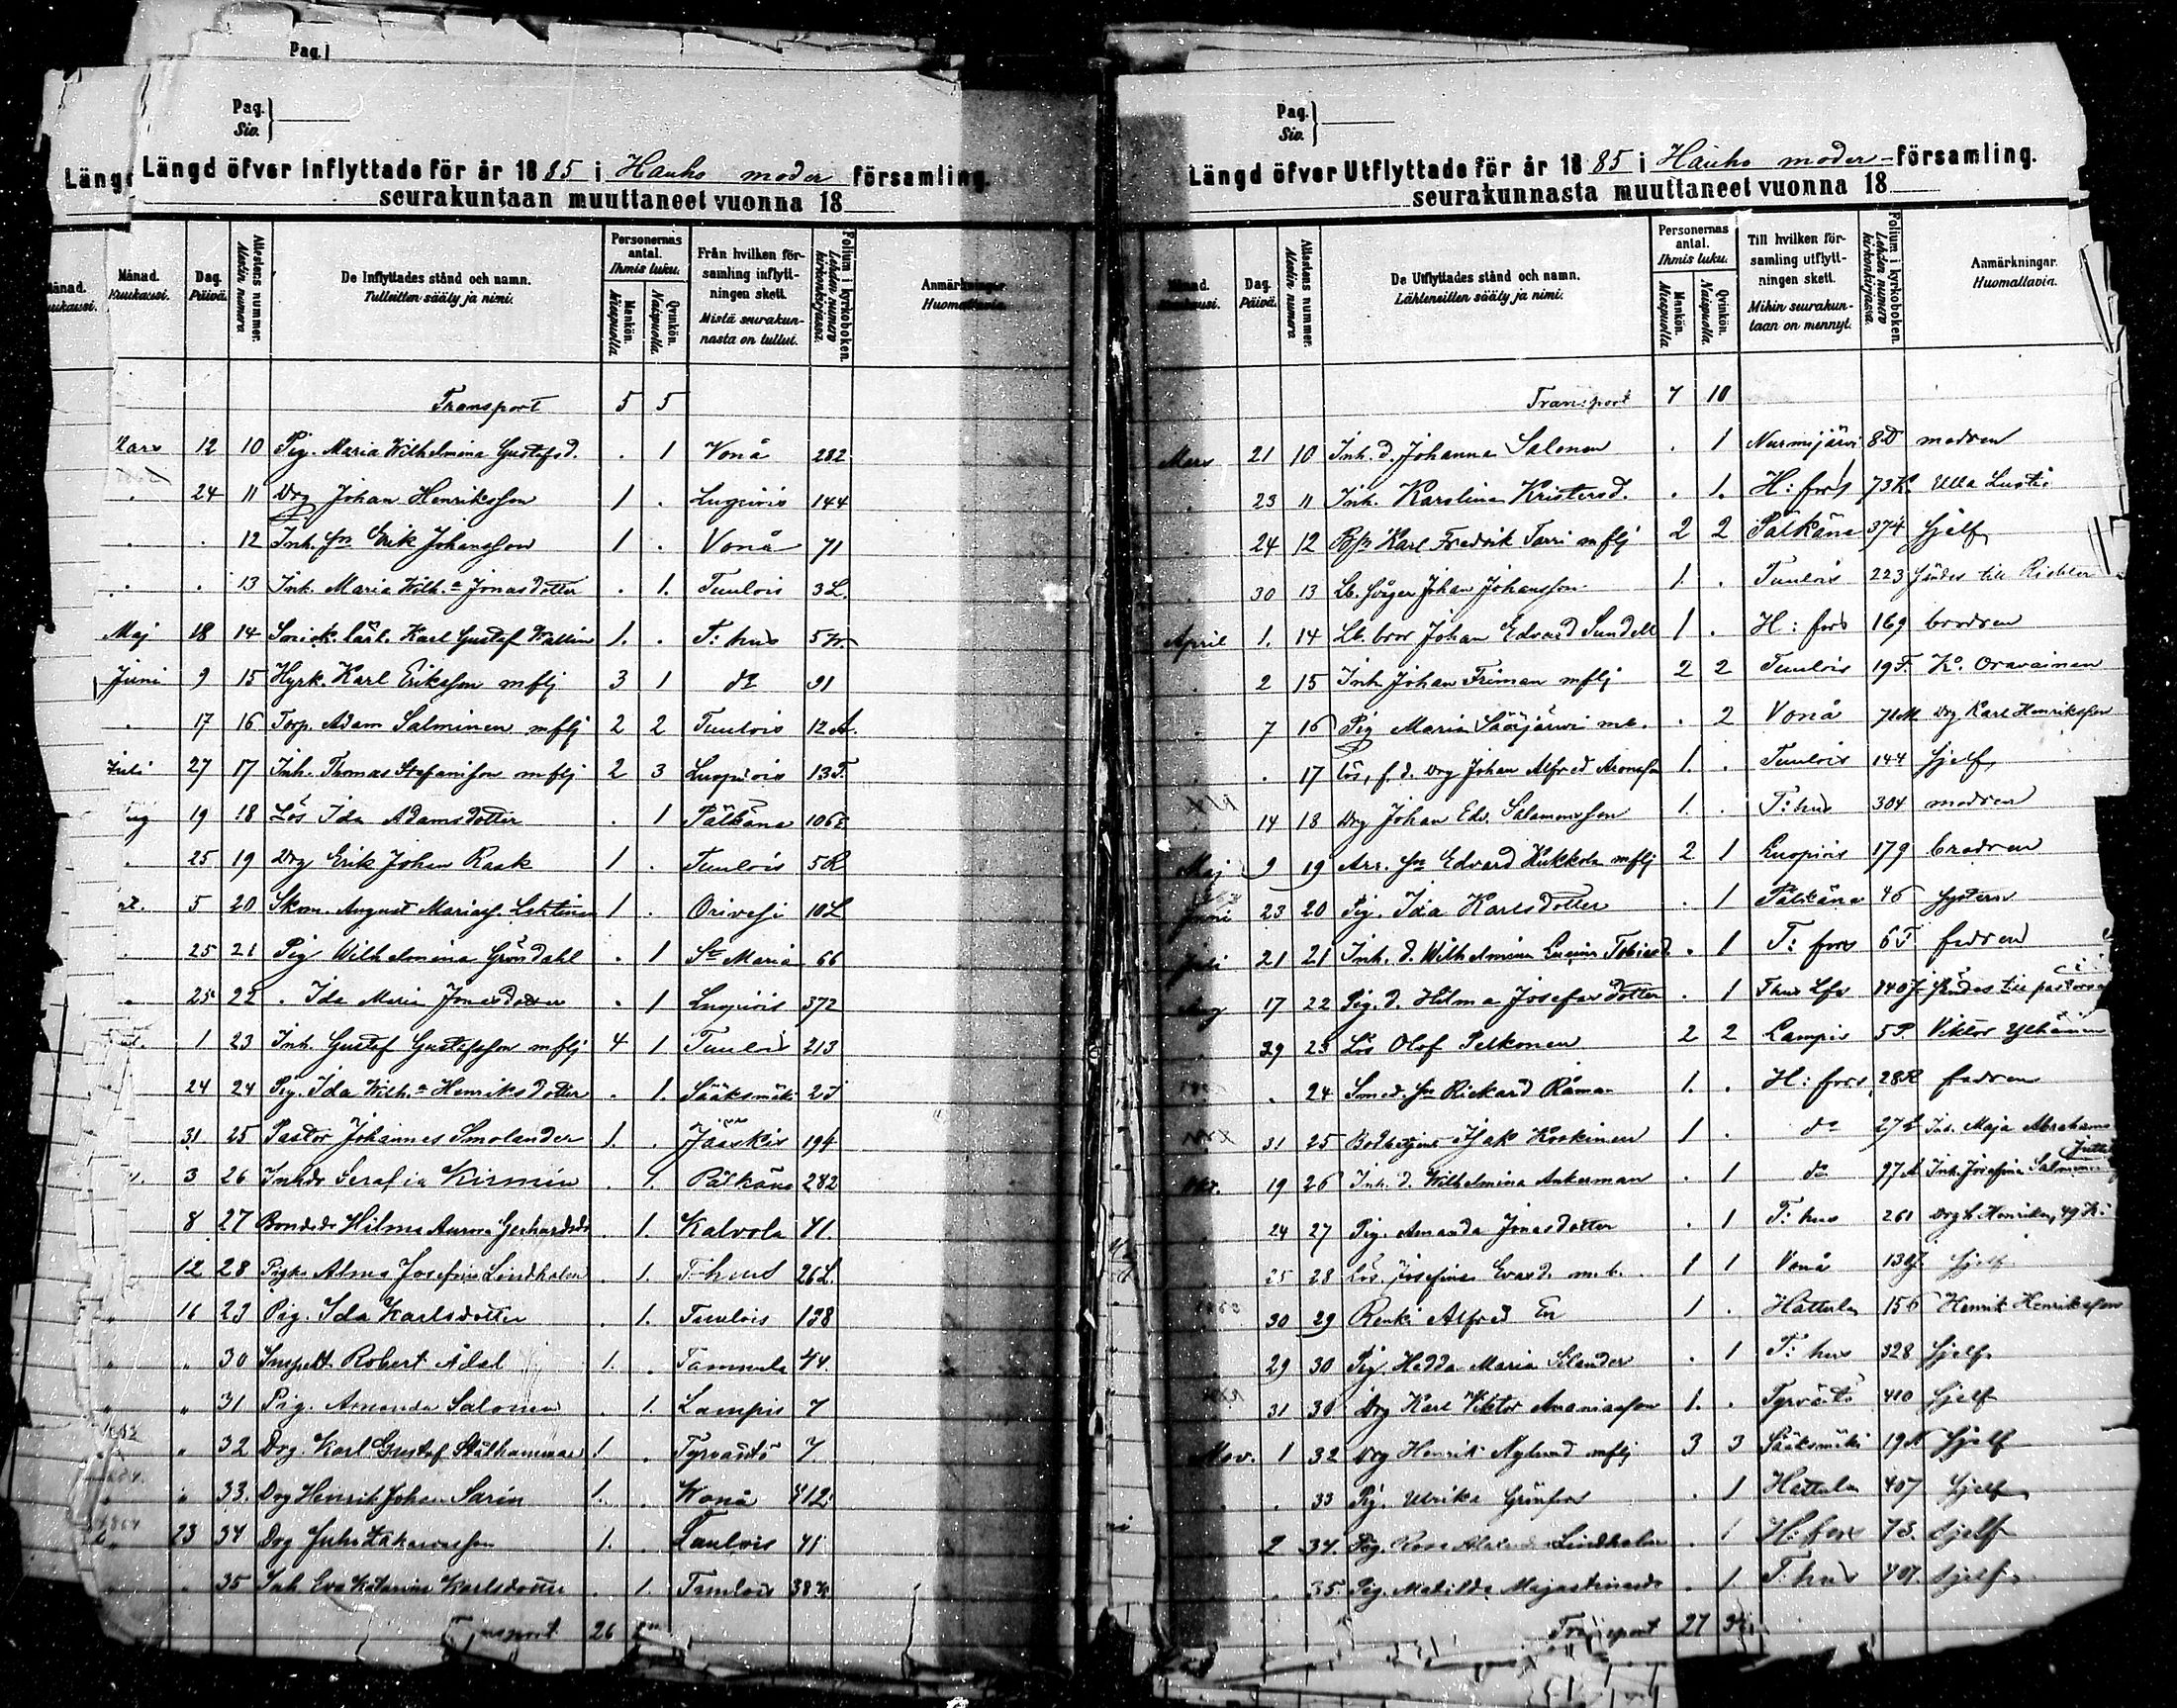 Pag.
Pag.
Siv.
Längd öfver Inflyttade för år 1885 i Hauho moder församling.
seurakuntaan muuttaneet vuonna 18
Månad. Kuukausi.
Dag. Päivä.
Attestens nummer. Alestin numero
De Inflyttades stånd och namn. Tulleitten sääty ja nimi.
Personernas antal. Ihmis luku.
Mankön. Miespuolia
Qvinkön. Naispuolia.
Från hvilken församling inflyttningen skett. Mistä seurakunnasta on tullut.
Folium i kyrkoboken. Lehden numero kirkonkirjassa.
Anmärkningar. Huomattavia.
Transport 5 5
Mars 12 10 Pig. Maria Wilhelmina Gustafsd. . 1 Vonå 282
. 24 11 Drg Johan Henriksson 1 . Luopiois 144
. . 12 Inh. sn Erik Johansson 1 . Vonå 71
. . 13 Inh. Maria Wilh:a Jonasdotter . 1. Tuulois 3L.
Maj 18 14 Snick. lärl. Karl Gustaf Wallin 1. . T:hus 5
Juni 9 15 Hyrk. Karl Eriksson mflj 3 1 do 91
. 17 16 Torp. Adam Salminen mflj 2 2 Tuulois 12A.
Juli 27 17 Inh. Thomas Stefansson mflj 2 3 Luopiois 13F.
Aug 19 18 Lös Ida Adamsdotter . 1 Pälkäne 106
. 25 19 Drg Erik Johan Rask 1 . Tuulois 5R
5 20 Skom. August Mariaes. Lehtinen 1 . Orivesi 10L
. 25 21 Pig Wilhelmina Gröndahl . 1 St Maria 66
. 25 22 . Ida Maria Jonasdotter . 1 Luopiois 372
1 23 Inh. Gustaf Gustafsson mflj 4 1 Tuulois 213
24 24 Pig. Ida Wilh:a Henriksdotter . 1. Sääksmäki 2J
31 25 Pastor Johannes Smolander 1. . Jääskis 194
3 26 Inhdr Serafia Kirmin . 1. Pälkäne 282
8 27 Bondedr Hilma Aurora Gerhardsdr . 1. Kalvola 41.
12 28 Pigan Alma Josefina Lindholm . 1. T:hus 26L.
16 29 Pig. Ida Karlsdotter . 1. Tuulois 128
" " 30 Inspekt. Robert Ådal 1. . Tammela 44.
" " 31 Pig. Amanda Salonen . 1. Lampis 7
" 32 Drg. Karl Gustaf Stålhammar 1. . Tyrväntö 7.
" 33. Drg Henrik Johan Sarin 1. . Wonå 412.
" 23 34 Drg Juho 1. . Tuulois 41
" " 35 Inh. Eva Katarina Karlsdotter . 1. Tuulois 38
Transport 26
Pag.
Siv.
Längd öfver Utflyttade för år 1885 i Hauho moder- församling.
seurakunnasta muuttaneet vuonna 18
Månad. Kuukausi.
Dag. Päivä.
Attestens nummer. Alestin numero
De Utflyttades stånd och namn. Lähteneitten sääty ja nimi.
Personernas antal. Ihmis luku.
Mankön. Miespuolia
Qvinkön. Naispuolia.
Till hvilken församling utflyttningen skett. Mihin seurakuntaan on mennyt.
Folium i kyrkoboken. Lehden numero kirkonkirjassa.
Anmärkningar. Huomattavia.
Transport 7 10
Mars 21 10 Inh. d. Johanna Salonen . 1 Nurmijärvi 8D modren
. 23 11 Inh. Karolina Kristersd. . 1. H:fors 73K. Ulla Lusti
. 24 12 Karl Fredrik Tarri mflj 2 2 Pälkäne 374 sjelf
. 30 13 Lb. svåger Johan Johansson 1. . Tuulois 223 sändes till
April 1. 14 Lb. bror Johan Edvard Sundell 1 . H:fors 169 brodren
. 2 15 Inh Johan Friman mflj 2 2 Tuulois 19F. K:o Oravainen
. 7 16 Pig Maria Sääjärvi mb. . 2 Vonå 71M. Drg Karl Henriksson
. . 17 Lös, f.d. Drg Johan Alfred Aronsson 1. . Tuulois 144 sjelf
14 18 Drg Johan Edv. Salomonsson 1. . T:hus 304 modren
Maj 9 19 Arr. sn Edvard Kukkola mflj 2 1 Luopiois 179 brodren
Juni 23 20 Pig. Ida Karlsdotter . 1 Pälkäne 46 systern
Juli 21 21 Inh. d. Wilhelmina . 1 T:fors 6T fadren
Aug 17 22 Pig. d. Hilma Josefasdotter . 1 sändes till
. 29 23 Lös Olof Pelkonen 2 2 Lampis 5P. Viktor
. 24 Smed. sn Rickard Råman 1. . H:fors 28R fadren
31 25 Isak Koskinen 1 . do Inh. Maja Abrahams
Okt. 19 26 Inh. d. Wilhelmina Ankerman . 1 do 27A Inh. Josefina Salminen
24 27 Pig. Amanda Jonasdotter . 1 T:hus 261
25 28 Lös. Josefina Evasd. m.b. 1 1 Vonå sjelf
30 29 Renki Alfred En 1 . Hattula 156 Henrik Henriksson
29 30 Pig. Hedda Maria Selander . 1 T:hus 328 sjelf
31 31 Drg Karl Viktor Ananiasson 1. . Tyrväntö 410 sjelf
Nov. 1 32 Drg Henrik Nylund mflj 3 3 Sääksmäki 19N sjelf
. 33 Pig. Ulrika Grönfors . 1 Hattula 407 sjelf
2 34. Pig. Rosa Lindholm . 1 H:fors 73. sjelf
. 35. Pig. Matilda . 1. T:hus 407. sjelf
Transport 27